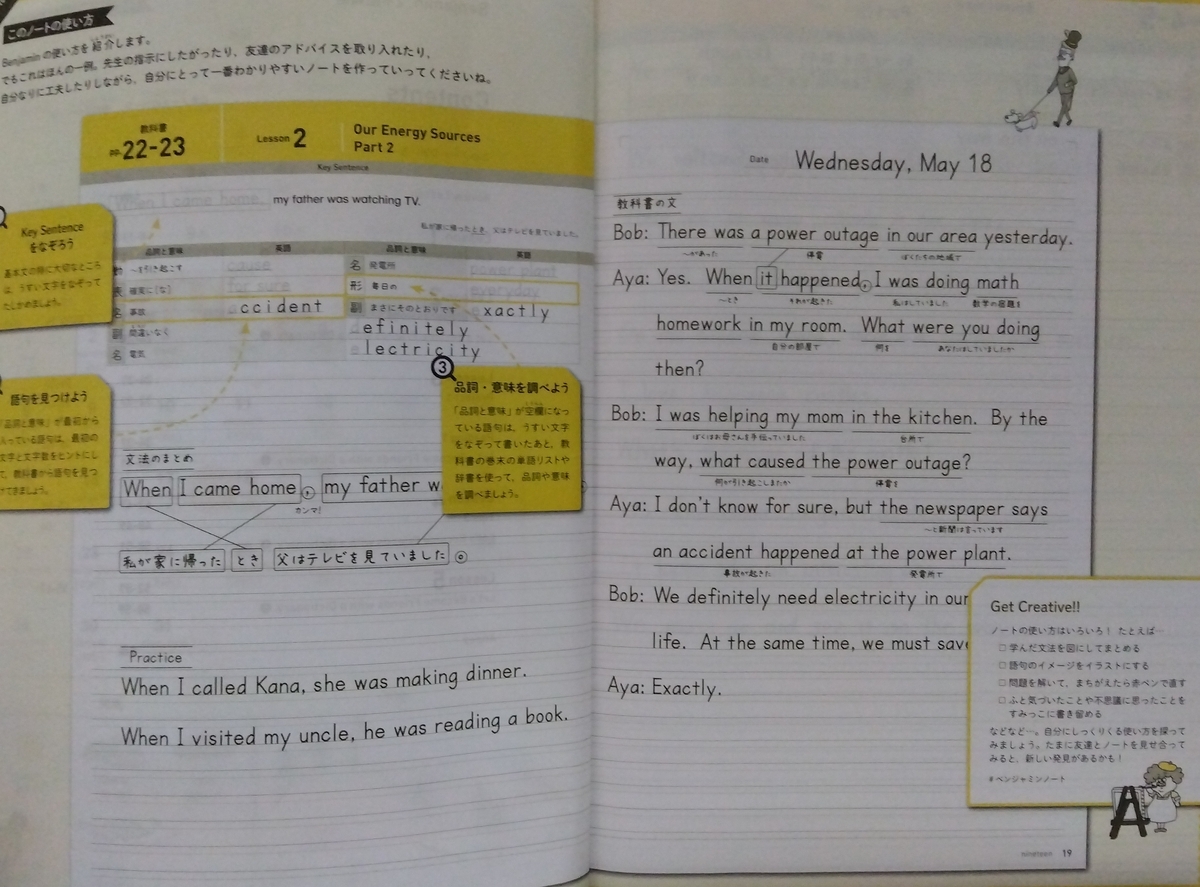 このノートの使い方
Benjamin の使い方を紹介します。
でもこれはほんの一例。先生の指示にしたがったり、友達のアドバイスを取り入れたり、
自分なりに工夫したりしながら、自分にとって一番わかりやすいノートを作っていってくださいね。
教科書
pp. 22-23
Lesson 2
Our Energy Sources
Part 2
Key Sentence
When I came home, my father was watching TV.
私が家に帰ったとき、父はテレビを見ていました。
品詞と意味 英語 品詞と意味 英語
～を引き起こす cause 名 発電所 power plant
確実に[な] for sure 形 毎日の everyday
名 事故 accident 副 まさにそのとおりです exactly
副 間違いなく definitely
名 電気 electricity
Key Sentence
をなぞろう
基本文の特に大切なところ
は、うすい文字をなぞって
たしかめましょう。
語句を見つけよう
「品詞と意味」が最初から
入っている語句は、最初の
文字と文字数をヒントにし
て、教科書から語句を見つ
けてきましょう。
3
品詞・意味を調べよう
「品詞と意味」が空欄になっ
ている語句は、うすい文字
をなぞって書いたあと、教
科書の巻末の単語リストや
辞書を使って、品詞や意味
を調べましょう。
文法のまとめ
When I came home, my father w
カンマ!
私が家に帰った とき 父はテレビを見ていました。
Practice
When I called Kana, she was making dinner.
When I visited my uncle, he was reading a book.
Date Wednesday, May 18
教科書の文
Bob: There was a power outage in our area yesterday.
～があった 停電 ぼくたちの地域で
Aya: Yes. When it happened, I was doing math
～とき それが起きた 私はしていました 数学の宿題を
homework in my room. What were you doing
自分の部屋で 何を あなたはしていましたか
then?
Bob: I was helping my mom in the kitchen. By the
ぼくはお母さんを手伝っていました 台所で
way, what caused the power outage?
何が引き起こしましたか 停電を
Aya: I don't know for sure, but the newspaper says
～と新聞は言っています
an accident happened at the power plant.
事故が起きた 発電所で
Bob: We definitely need electricity in our
life. At the same time, we must save
Aya: Exactly.
Get Creative!!
ノートの使い方はいろいろ! たとえば…
□ 学んだ文法を図にしてまとめる
□ 語句のイメージをイラストにする
□ 問題を解いて、まちがえたら赤ペンで直す
□ ふと気づいたことや不思議に思ったことを
すみっこに書き留める
などなど…。自分にしっくりくる使い方を探って
みましょう。たまに友達とノートを見せ合って
みると、新しい発見があるかも!
#ベンジャミンノート
A
nineteen 19